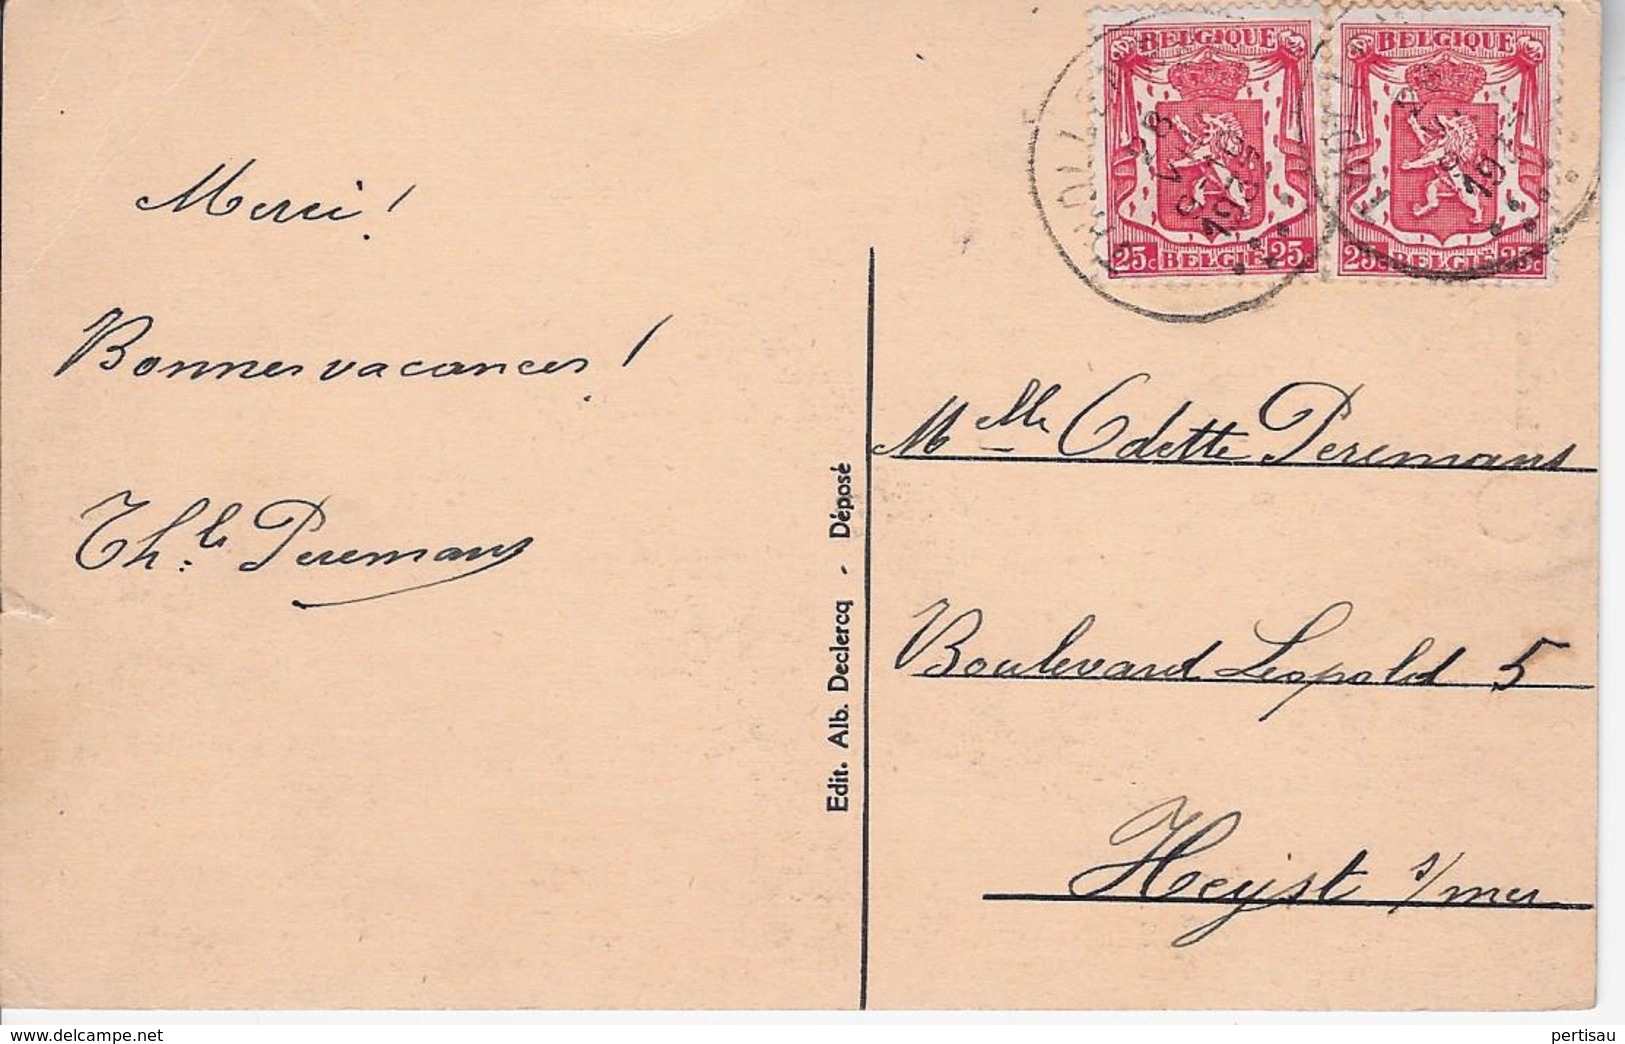 Merci!
Bonnes vacances!
Th. le Peremans
Edit. Alb. Declercq - Déposé
BELGIQUE
25c BELGIË 25c
BELGIQUE
25c BELGIË 25c
Melle Odette Peremans
Boulevard Leopold 5
Heyst s/mer
delcampe.net
pertisau